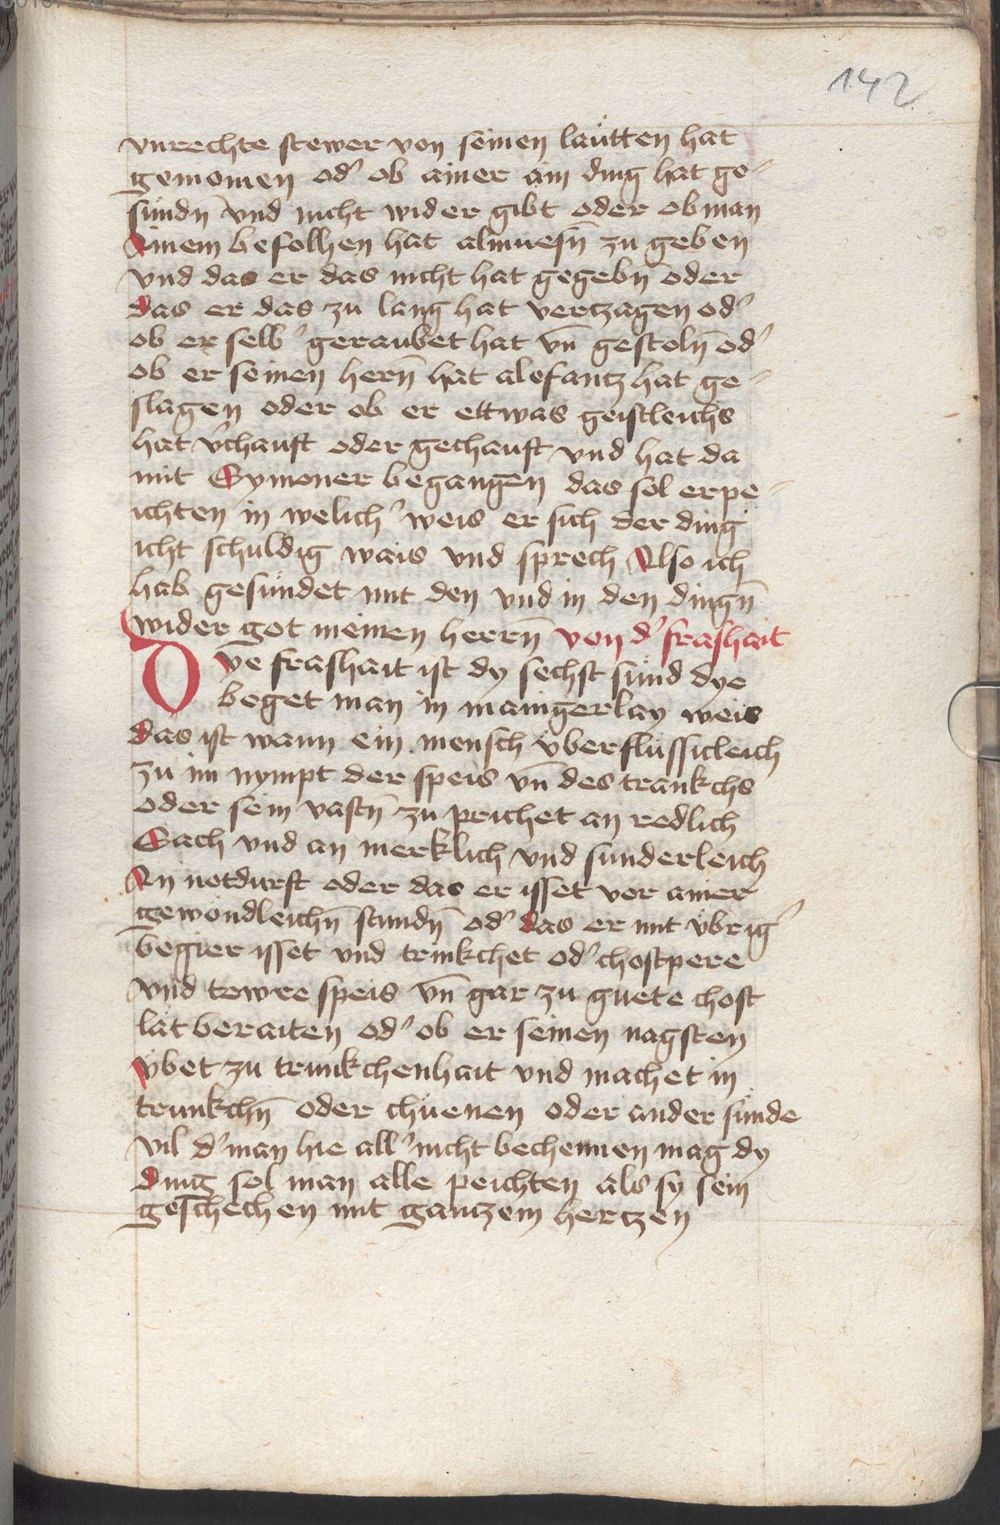 142
vnrechte stewer von seinen laütten hat
genomen od' ob ainer ain ding hat ge-
fundn̄ vnd nicht wider gibt oder ob man
Ainem befolhen hat almuesn̄ zu geben
vnd das er das nicht hat gegebn̄ oder
das er das zu lang hat vertzagen od'
ob er selb' geraubet hat vn̄ gestoln̄ od'
ob er seinen hern̄ hat alefantz hat ge-
slagen oder ob er ettwas geistleichs
hat v'chauft oder gechauft vnd hat da
mit Symoner begangen das sol er pe-
ichten in welich' weis er sich der ding
icht schuldig wais vnd sprech Also ich
hab gesündet mit den vnd in den dingn̄
wider got meinen herrn̄ von d' frashait
Dye frashait ist dy sechst sünd dye
beget man in maingerlay weis
das ist wann ein mensch vberflüssicleich
zu im nympt der speis vn̄ des trankchs
oder sein vastn̄ zu prichet an redlich
Sach vnd an merklich vnd sunderleich
An notdurft oder das er isset vor ainer
gewondleichn̄ stundn̄ od' das er mit vbrig'
begier isset vnd trinkchet od' chostpere
vnd tewre speis vn̄ gar zu guete chost
lat beraiten od' ob er seinen nagsten
vbet zu trunkchenhait vnd machet in
trunkchn̄ oder chüenen oder ander sunde
vil d' man hie all' nicht bechennen mag dy
ding sol man alle peichten als sy sein
geschechen mit gantzem hertzen